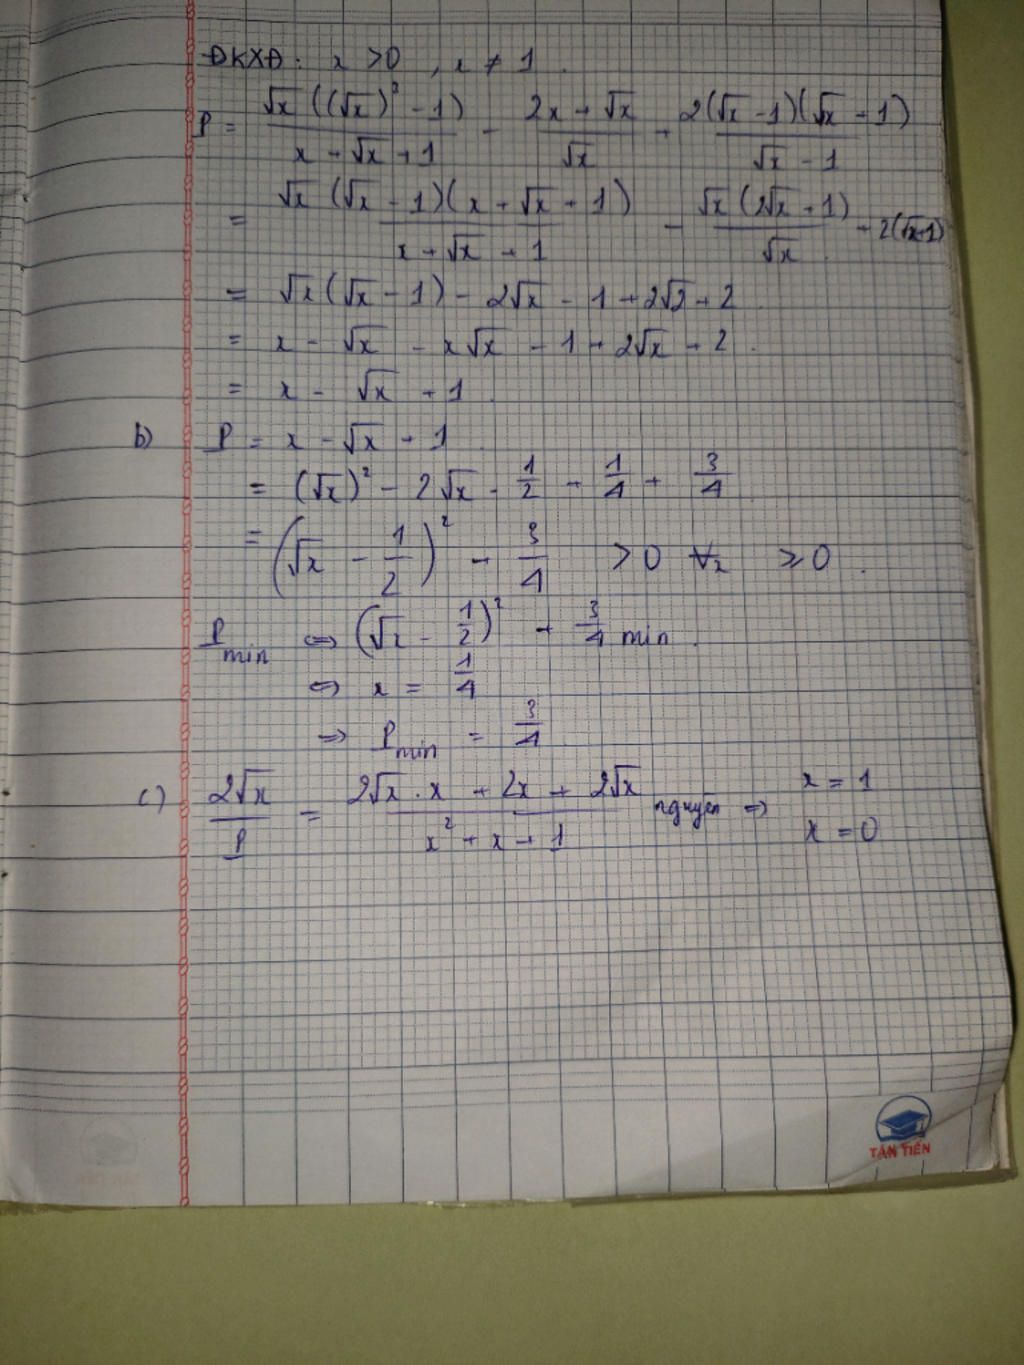 ĐKXĐ: x > 0, x ≠ 1.
P = √x((√x)³ - 1) / (x + √x + 1) - (2x + √x) / √x + 2(√x - 1)(√x + 1) / (√x - 1)
= √x(√x - 1)(x + √x + 1) / (x + √x + 1) - √x(2√x + 1) / √x + 2(√x+1)
= √x(√x - 1) - 2√x - 1 + 2√2 + 2
= x - √x - x√x - 1 + 2√x + 2.
= x - √x + 1.
b) P = x - √x + 1.
= (√x)² - 2√x · 1/2 + 1/4 + 3/4
= (√x - 1/2)² + 3/4 > 0 ∀x ≥ 0.
P min ⇔ (√x - 1/2)² + 3/4 min.
⇔ x = 1/4
⇒ P min = 3/4
c) 2√x / P = (2√x · x + 2x + 2√x) / (x² + x + 1) nguyên ⇒ x = 1
x = 0
TÂN TIẾN